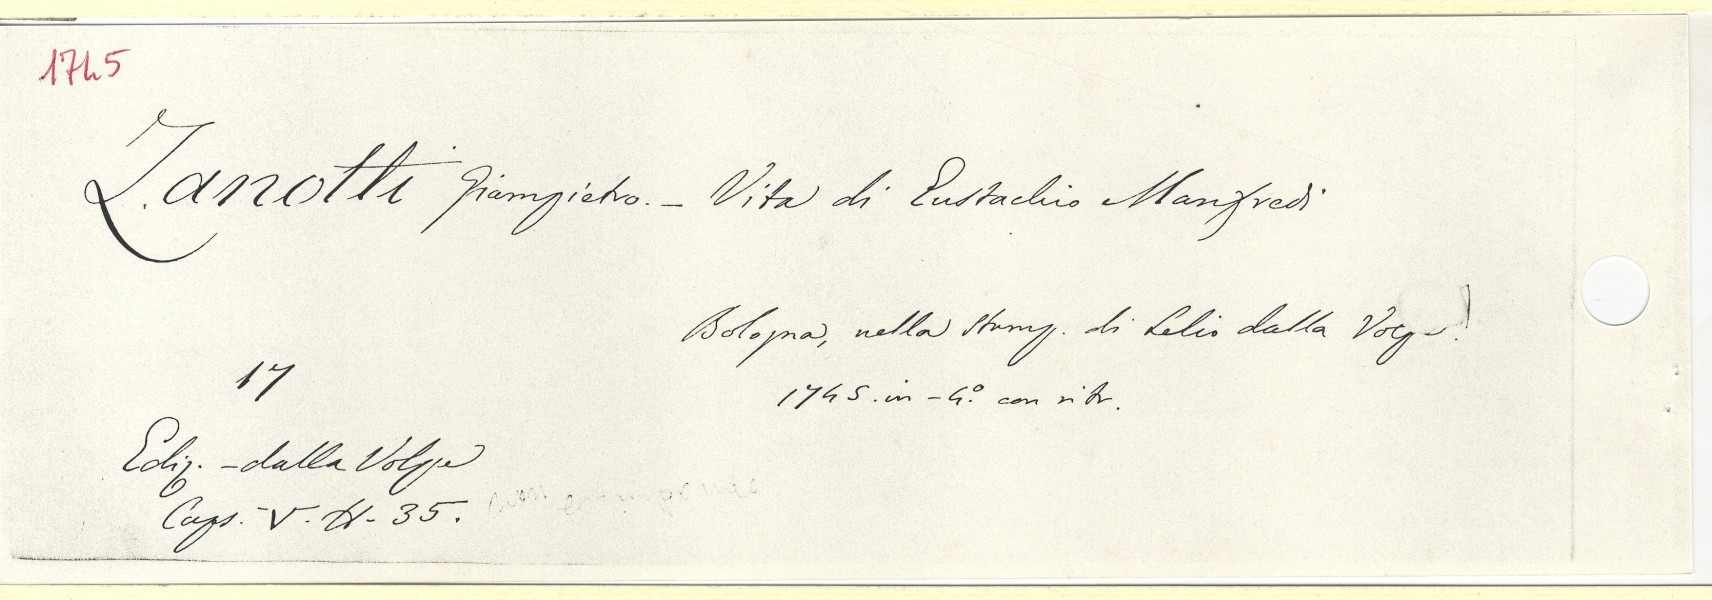 1745
Zanotti Giampietro. - Vita di Eustachio Manfredi
Bologna, nella stamp. di Lelio dalla Volpe.
1745. in-4.º con ritr.
17
Ediz. - dalla Volpe
Caps. V. N. 35.